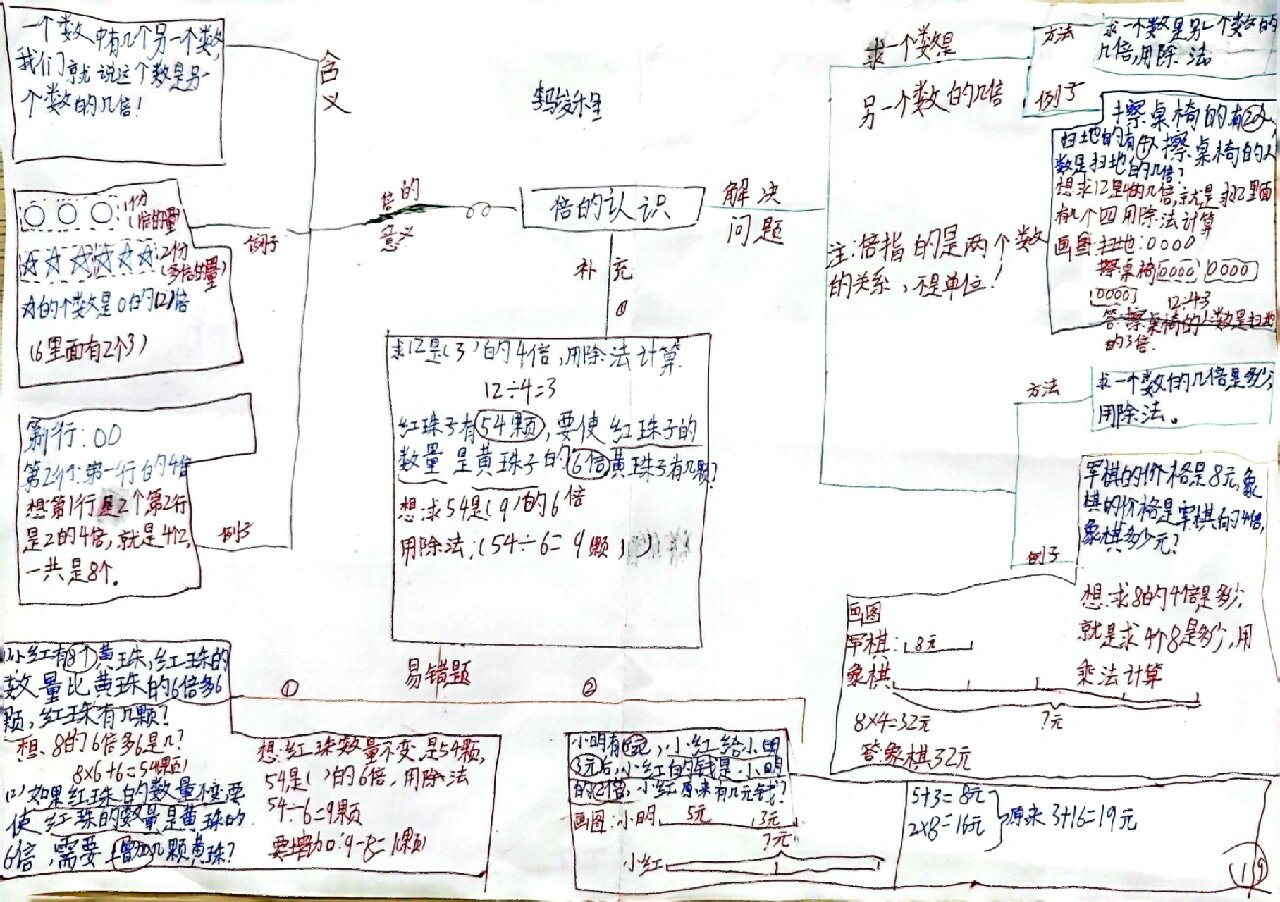 一个数中有几个另一个数,
我们就说这个数是另一
个数的几倍!
含义
倍的认识
倍的
意义
例子
1份
(1倍的量)
2份
(多倍的量)
☆的个数是○的(2)倍
(6里面有2个3)
第1行:○○
第2行:第一行的4倍
想第1行是2个第2行
是2的4倍,就是4个2,
一共是8个。
例子
解决
问题
求一个数是
另一个数的几倍
方法
求一个数是另一个数的
几倍,用除法。
例子
擦桌椅的有12人,
扫地的有4人擦桌椅的人
数是扫地的几倍?
想求12是4的几倍,就是求12里面
有几个四用除法计算
画图:扫地:0000
擦桌椅0000 0000
0000 12÷4=3
答:擦桌椅的人数是扫地
的3倍.
注:倍指的是两个数
的关系,不是单位!
方法
求一个数的几倍是多少,
用除法。
例子
军棋的价格是8元,象
棋的价格是军棋的4倍,
象棋多少元?
想:求8的4倍是多少,
就是求4个8是多少,用
乘法计算
画图
军棋: 8元
象棋
?元
8×4=32元
答:象棋32元
补充
①
求12是(3)的4倍,用除法计算.
12÷4=3
红珠子有54颗,要使红珠子的
数量是黄珠子的6倍黄珠子有几颗?
想:求54是(9)的6倍
用除法:(54÷6=9颗)
易错题
①
②
(1)小红有8个黄珠,红珠的
数量比黄珠的6倍多6
颗,红珠有几颗?
想:8的6倍多6是几?
8×6+6=54(颗)
(2)如果红珠的数量不变要
使红珠的数量是黄珠的
6倍,需要增加几颗黄珠?
想:红珠数量不变,是54颗,
54是()的6倍,用除法
54÷6=9颗
要增加:9-8=1(颗)
小明有5元,小红给小明
3元后,小红的钱是小明
的2倍,小红原来有几元钱?
画图:小明 5元 3元
?元
小红
5+3=8元
2×8=16元
原来3+16=19元